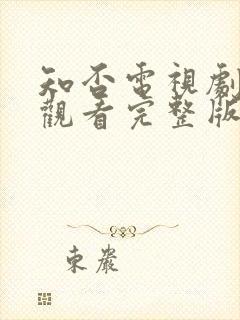 知否電視劇
觀看完整版
東嚴